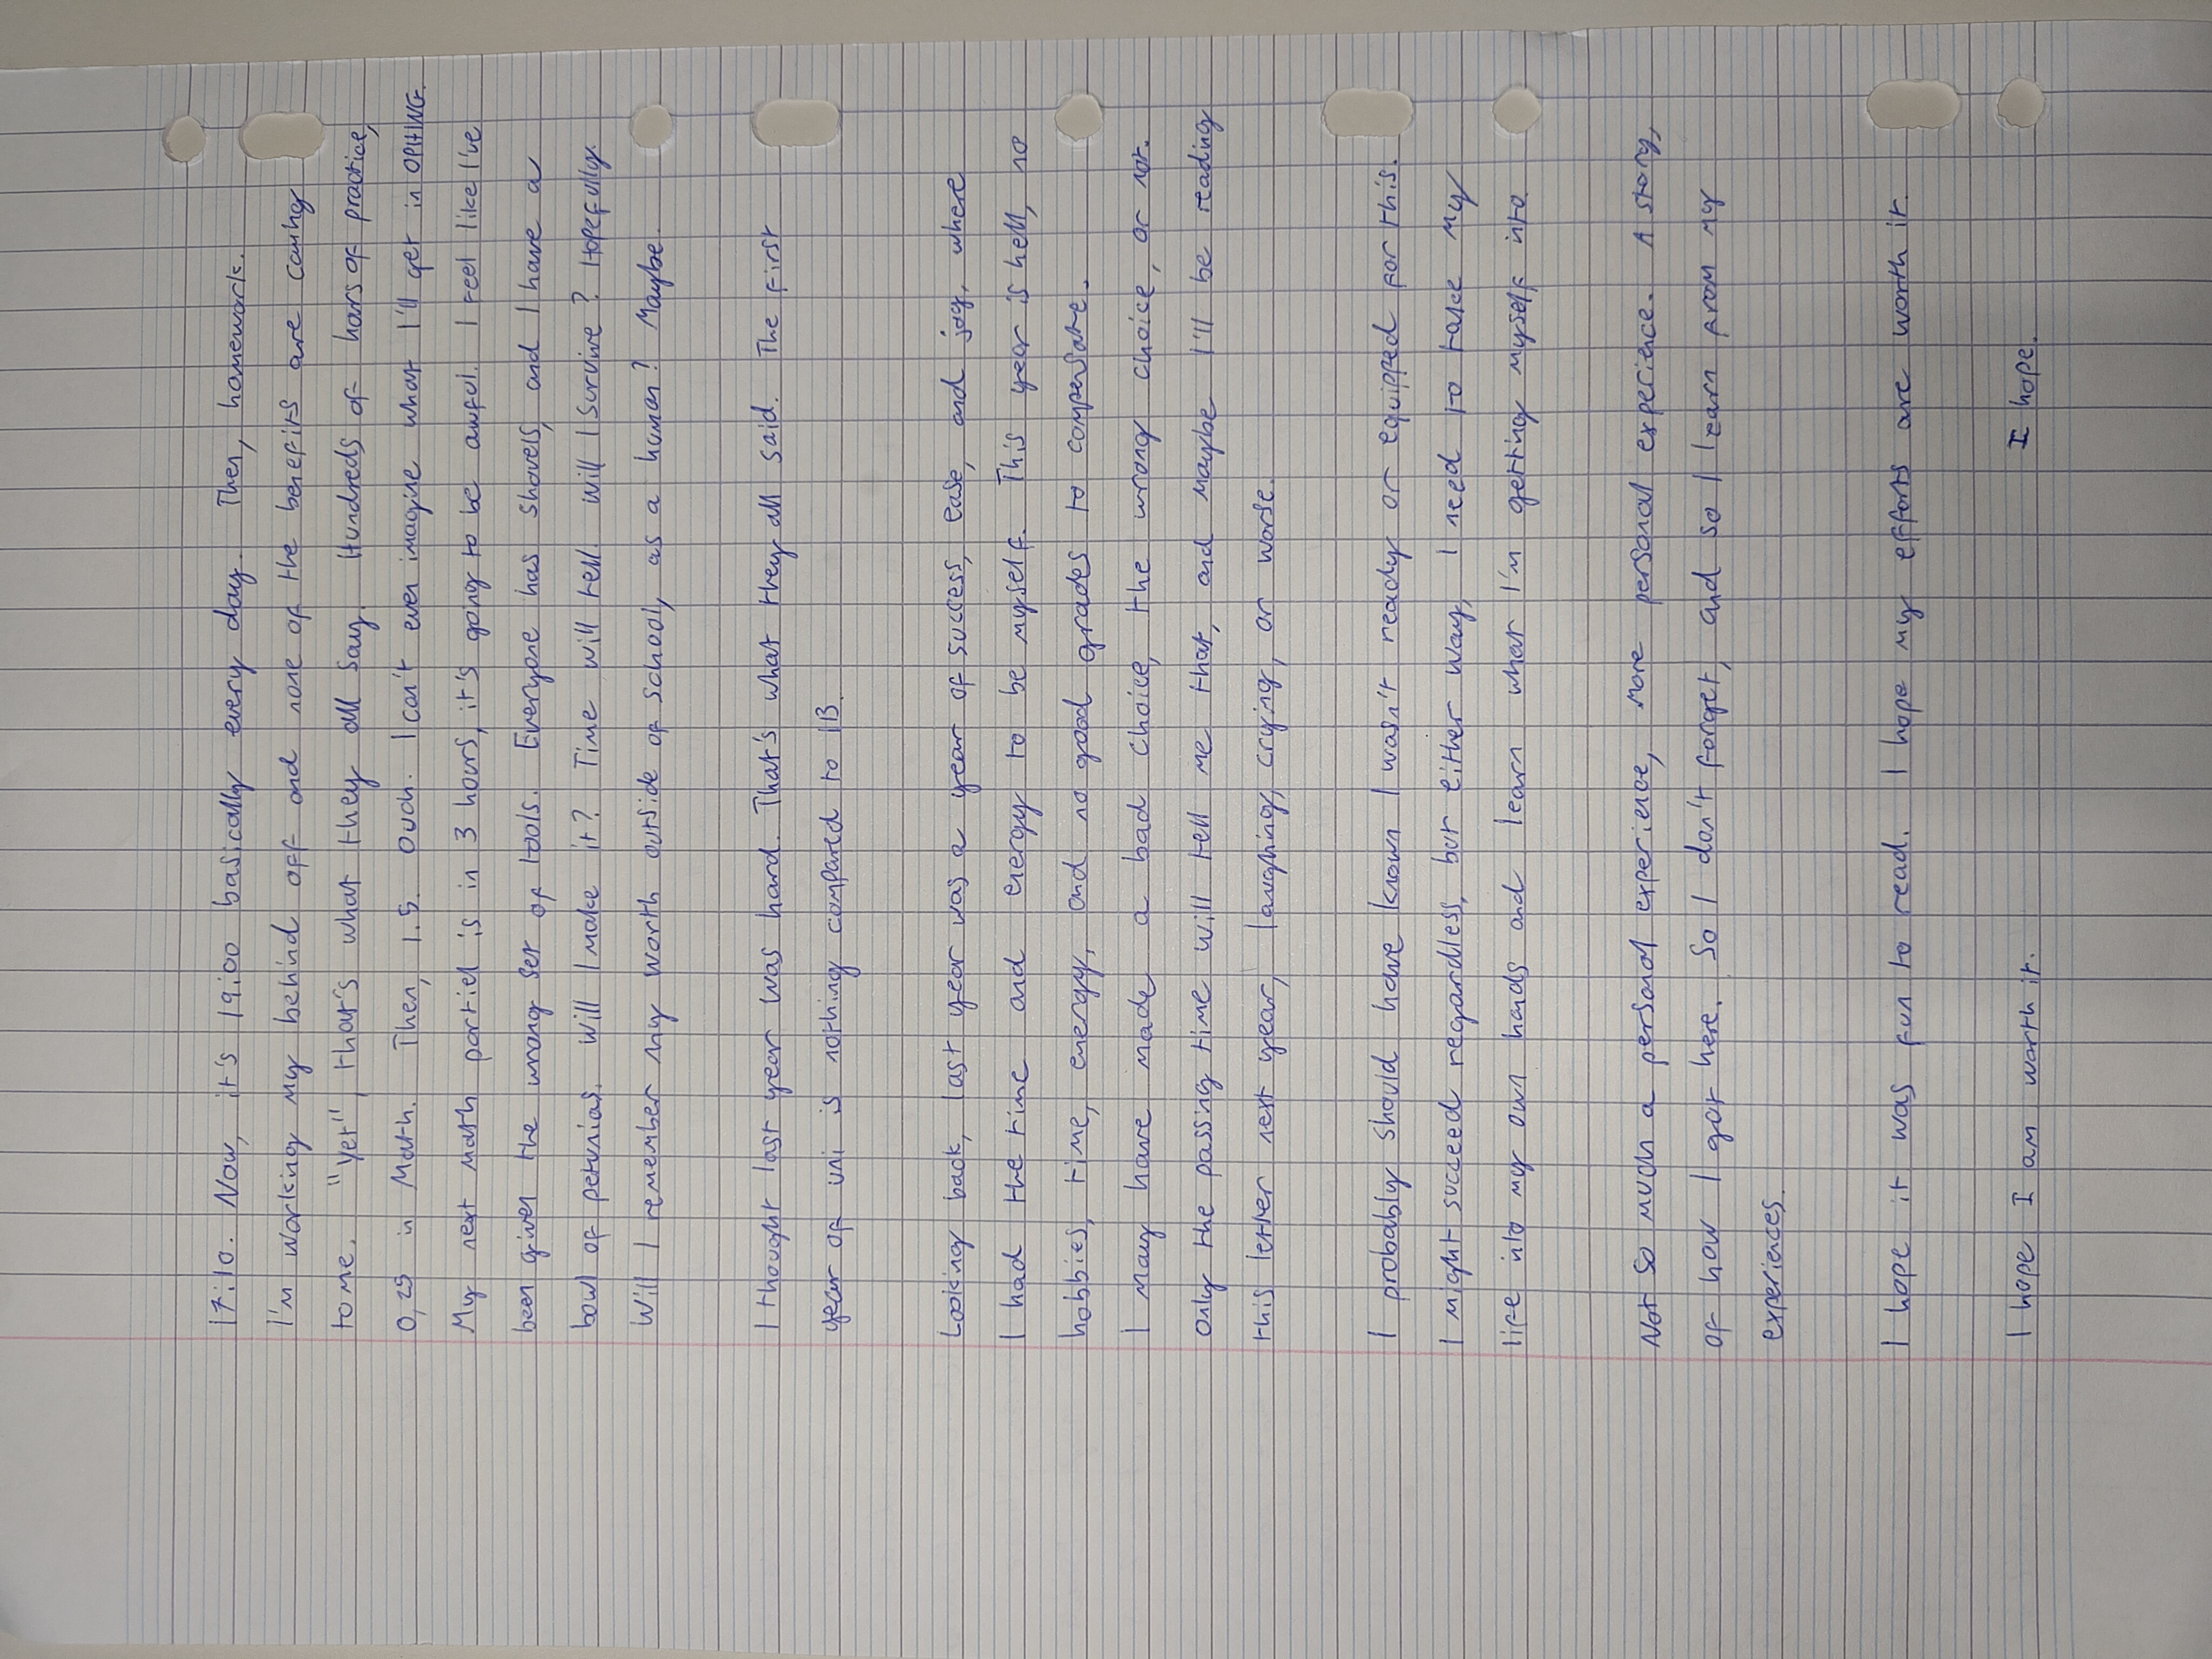 17:10. Now, it's 19:00 basically every day. Then, homework.
I'm working my behind off and none of the benefits are coming
to me. "Yet", that's what they all say. Hundreds of hours of practice,
0,25 in Math. Then, 1.5. Ouch. I can't even imagine what I'll get in
My next math partiel is in 3 hours, it's going to be awful. I feel like I've
been given the wrong set of tools. Everyone has shovels, and I have a
bowl of petunias. Will I make it? Time will tell. Will I survive? Hopefully.
Will I remember my worth outside of school, as a human? Maybe.
I thought last year was hard. That's what they all said. The first
year of uni is nothing compared to 1B.
Looking back, last year was a year of success, ease, and joy, where
I had the time and energy to be myself. This year is hell, no
hobbies, time, energy, and no good grades to compensate.
I may have made a bad choice, the wrong choice, or not.
only the passing time will tell me that, and maybe I'll be reading
this letter next year, laughing, crying, or worse.
I probably should have known I wasn't ready or equipped for this.
I might succeed regardless, but either way, I need to take my
life into my own hands and learn what I'm getting myself into.
Not so much a personal experience, more personal experience. A story,
of how I got here. So I don't forget, and so I learn from my
experiences.
I hope it was fun to read. I hope my efforts are worth it.
I hope I am worth it. I hope.